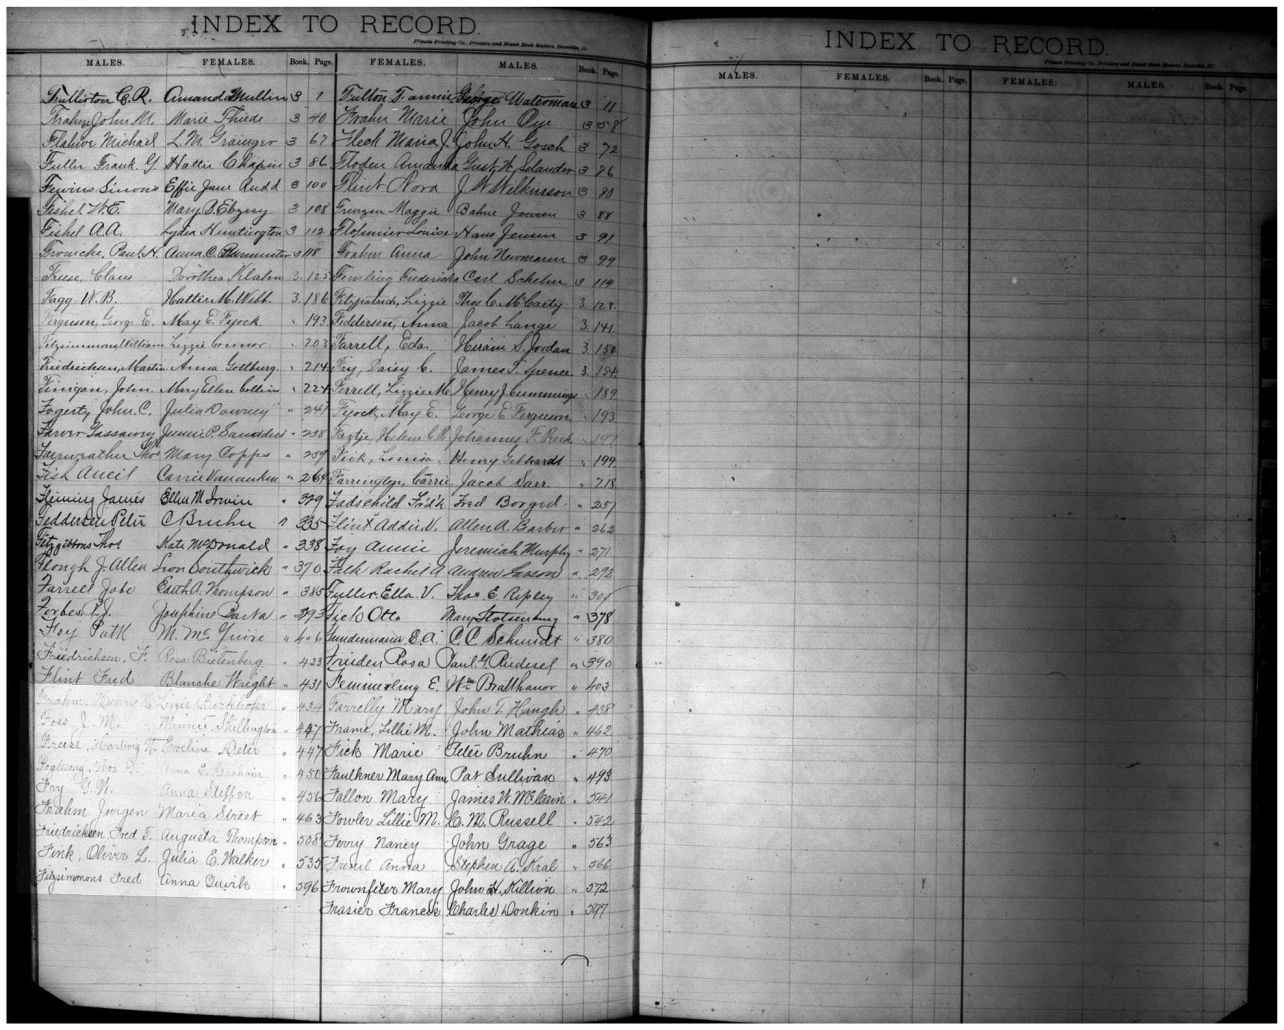 INDEX TO RECORD.
Illinois Printing Co., Printers and Blank Book Makers, Danville, Ill.
MALES. FEMALES. Book. Page. FEMALES. MALES. Book. Page.
Fullerton C. R. Amanda Mullen 3 1 Fulton Fannie George Waterman 3 11
Frahm John M. Marie Thiede 3 40 Frahm Marie John Oye 3 58
Flahive Michael L. M. Grainger 3 67 Fleck Maria J. John H. Gosch 3 72
Fuller Frank G. Hattie Chapin 3 86 Floden Amanda Gust W. Selander 3 86
Simons Effie Jane Rudd 3 100 Flint Nora J W Wilkinson 3 80
Fishel W. E. Mary B. 3 108 Maggie Bahne Jensen 3 88
Fishel A A. Lydia Huntington 3 112 Louise Hans Jensen 3 91
Paul H. Anna C. 3 118 Frahm Anna John Newmann 3 99
Friese, Claus Dorothea Klahn 3. 125 Fredericka Carl 3 114
Fagg W. B. Hattie M. Webb. 3. 186 Fitzpatrick, Lizzie Thos C. McCarty 3. 128.
Ferguson, George E. May E. Fyock. " 193 Feddersen, Anna Jacob Lange 3. 141
Fitzsimmons, William Lizzie Connor. " 203 Farrell, Eda. Hiram S. Jordan 3. 150
Friedrichsen, Martin Anna Gottburg. " 214 Fry, Daisy C. James T. Spence 3. 154
Finigan, John. Mary Ellen Collins " 224 Ferrell, Lizzie M. Henry J. Cummings " 189
Fogerty John C. Julia Downey " 241 Fyock, May E. George E. Ferguson " 193
Farver Gassaway Jennie P. Saunders " 258 Helene C. R. Johannes F. Reck " 197
Thos Mary Copps " 259 Fick, Louisa. Henry Gebhardt " 199
Fish Ancil Carrie Vanankin " 264 Farrington, Carrie Jacob Darr. " 218
Fleming James Ellen M Irwin " 329 Fadschild Fred Borgert " 257
Feddersen Peter C Bruhn " 335 Flint Addie V. Allen A. Barber " 262
Fitzgibbons Thos Kate McDonald " 338 Foy Annie Jeremiah Murphy " 271
Flough J. Allen Leon Southwick " 370 Falk Rachel A Andrew Larson " 272
Farrell Jobe Edith A. Thompson " 385 Fuller Ella V. Thos E. Ripley " 309
Forbes P. J. Josephine " 393 Fick Otto Mary " 378
Foy Patk M. McGuire " 406 E. A. C C Schmidt " 380
Friedrichsen, F. Rosa Bietenberg " 423 Frieden Rosa Paul G. " 390
Flint Fred Blanche Wright " 431 Femmerling E. Wm Bralthauer " 403
Frahm, Henry Lizzie Berkhofer " 434 Farrelly Mary John T. Haugh " 438
Foss J. M. Minnie Skillington " 447 Frame, Lillie M. John Mathias " 462
Freese, Hartwig H. Eveline Deter " 447 Fick Marie Peter Bruhn " 470
Fogleson, Thos Anna E. Graham " 450 Faulkner Mary Ann Pat Sullivan " 493
Fry G. W. Anna Steffen " 456 Fallon Mary James W. McCain " 541
Frahm Jurgen Maria Street " 463 Fowler Lillie M. C. M. Russell " 542
Friedrichsen Fred T. Augusta Thompson " 508 Ferry Nancy John Grage " 563
Fink, Oliver L. Julia E. Walker " 535 Anna Stephen A. Kral " 566
Fitzsimmons Fred Anna Quirk " 596 Frownfeter Mary John H. Killion " 572
Frasier Frances Charles Donkin " 597
INDEX TO RECORD.
Illinois Printing Co., Printers and Blank Book Makers, Danville, Ill.
MALES. FEMALES. Book. Page. FEMALES. MALES. Book. Page.